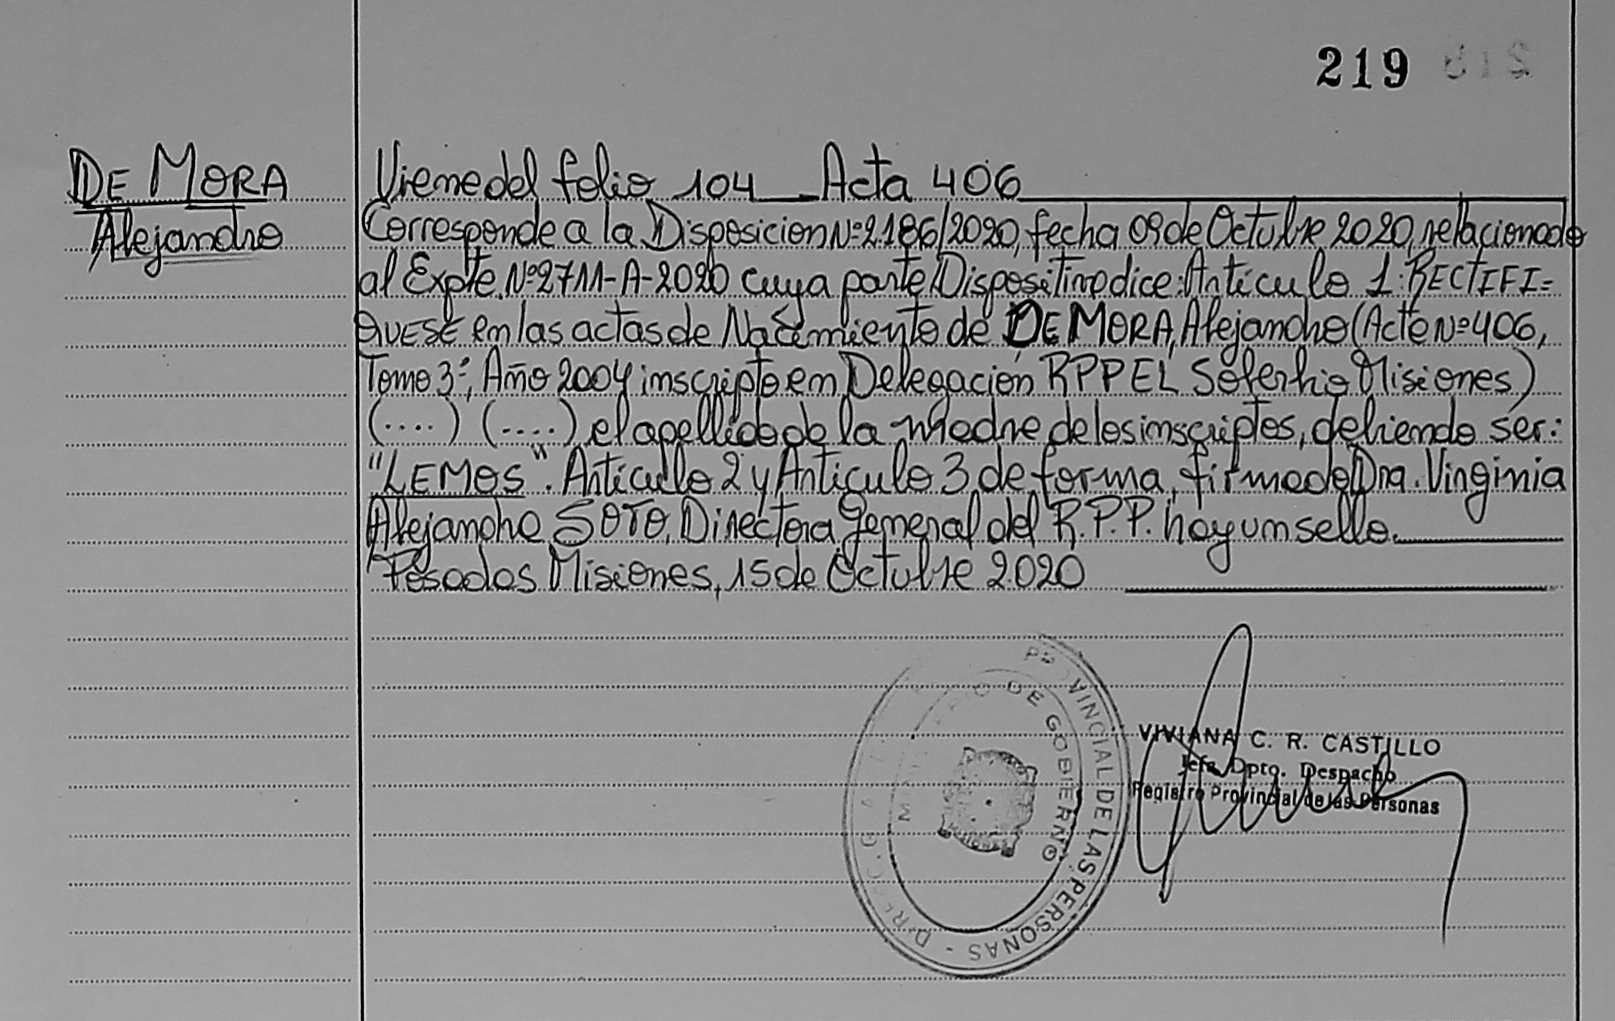 219
DE MORA
Alejandro
Viene del folio 104 Acta 406
Corresponde a la Disposicion Nº 2186/2020, fecha 09 de Octubre 2020, relacionado
al Expte. Nº 2711-A-2020 cuya parte Dispositiva dice: Articulo 1: RECTIFI=
QUESE en las actas de Nacimiento de DE MORA, Alejandro (Acta Nº 406,
Tomo 3º, Año 2004 inscripto en Delegación RPPEL Soferhio Misiones)
(....) (....) el apellido de la madre de los inscriptos, debiendo ser:
"LEMOS". Articulo 2 y Articulo 3 de forma, firmado Dra. Virginia
Alejandra SOTO, Directora general del R.P.P. hay un sello.
Posadas Misiones, 15 de Octubre 2020
PROVINCIAL DE LAS PERSONAS
DE GOBIERNO
VIVIANA C. R. CASTILLO
Jefa Dpto. Despacho
Registro Provincial de las Personas